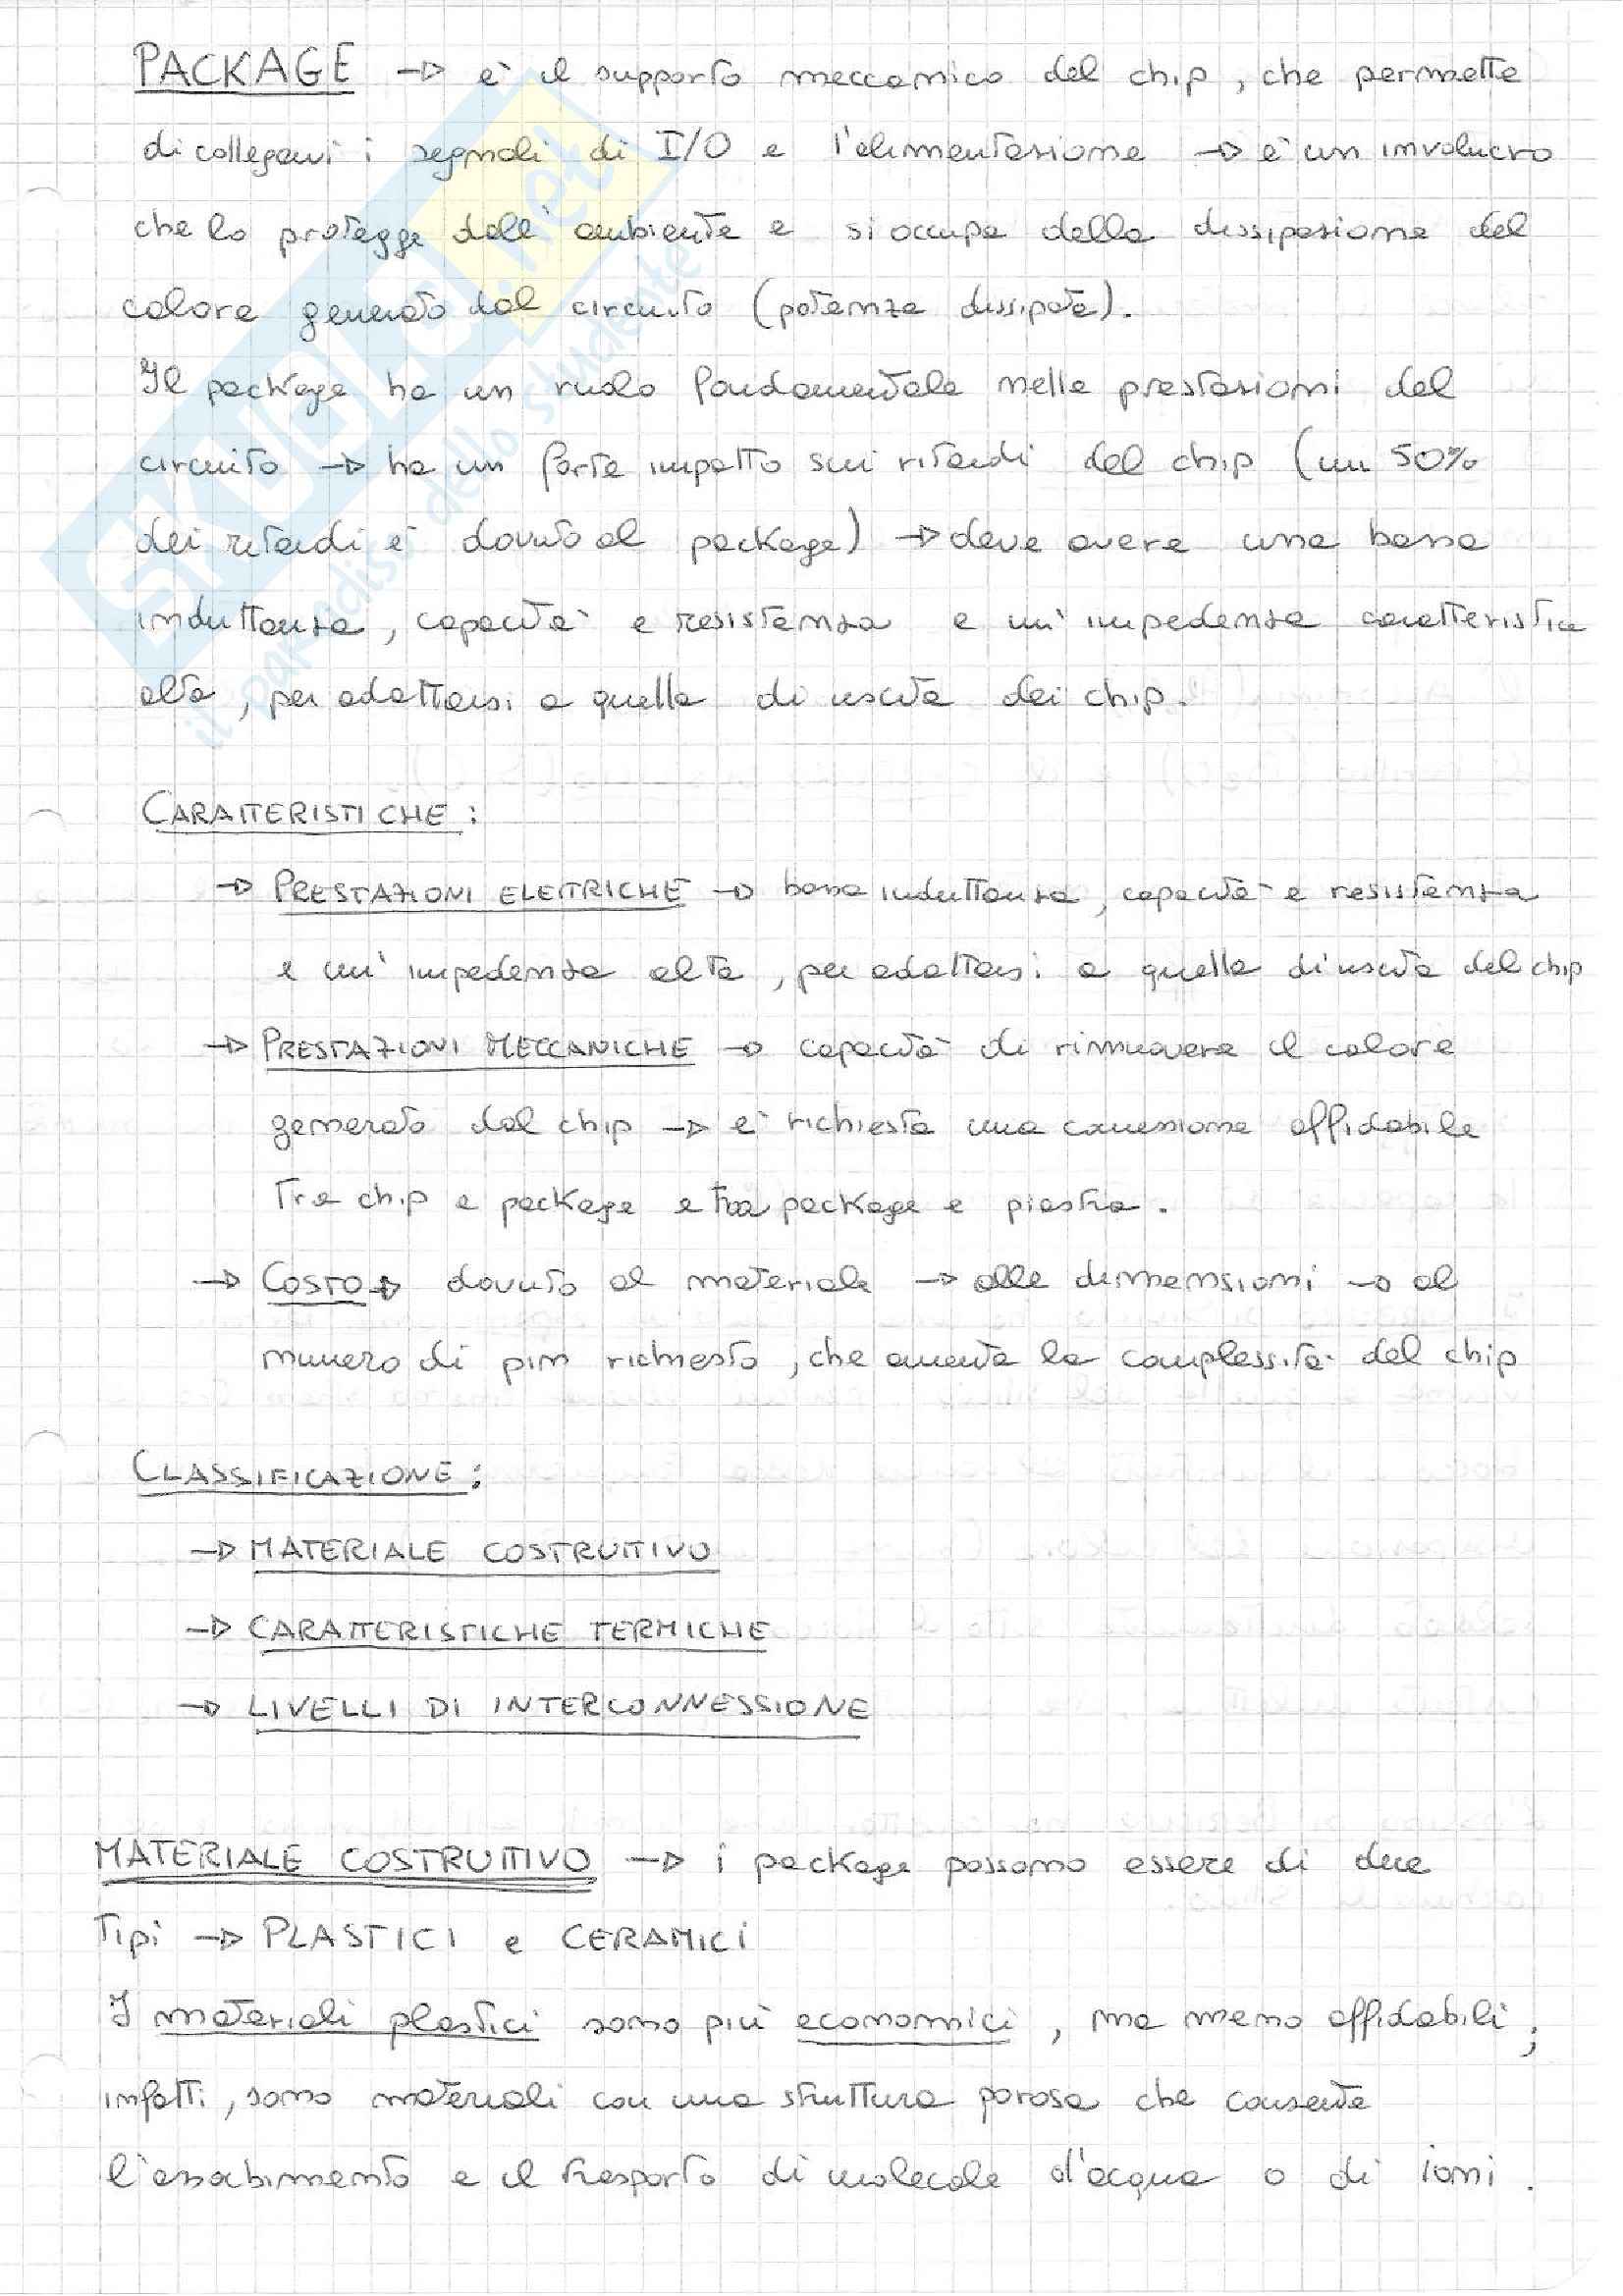 PACKAGE → è il supporto meccanico del chip, che permette
di collegarvi i segnali di I/O e l'alimentazione → è un involucro
che lo protegge dall'ambiente e si occupa della dissipazione del
calore generato dal circuito (potenza dissipata).
Il package ha un ruolo fondamentale nelle prestazioni del
circuito → ha un forte impatto sui ritardi del chip (un 50%
dei ritardi è dovuto al package) → deve avere una bassa
induttanza, capacità e resistenza e un'impedenza caratteristica
alta, per adattarsi a quella di uscita dei chip.
CARATTERISTICHE:
→ PRESTAZIONI ELETTRICHE → bassa induttanza, capacità e resistenza
e un'impedenza alta, per adattarsi a quella di uscita del chip
→ PRESTAZIONI MECCANICHE → capacità di rimuovere il calore
generato dal chip → è richiesta una connessione affidabile
tra chip e package e tra package e piastra.
→ COSTO → dovuto al materiale → alle dimensioni → al
numero di pin richiesto, che aumenta la complessità del chip
CLASSIFICAZIONE:
→ MATERIALE COSTRUTTIVO
→ CARATTERISTICHE TERMICHE
→ LIVELLI DI INTERCONNESSIONE
MATERIALE COSTRUTTIVO → i package possono essere di due
Tipi → PLASTICI e CERAMICI
I materiali plastici sono più economici, ma meno affidabili;
infatti, sono materiali con una struttura porosa che consente
l'assorbimento e il trasporto di molecole d'acqua o di ioni.
SKUOLA.net
il paradiso dello studente